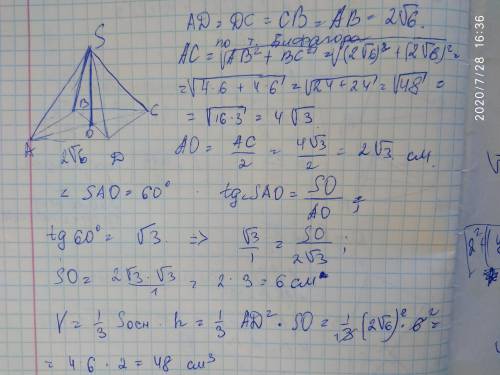 S
B
C
O
A
2√6
D
AD = DC = CB = AB = 2√6.
по т. Пифагора
AC = √AB² + BC² = √(2√6)² + (2√6)² =
= √4·6 + 4·6 = √24+24 = √48 =
= √16·3 = 4√3
AO = AC/2 = 4√3/2 = 2√3 см.
∠ SAO = 60° tg∠SAO = SO/AO ;
tg 60° = √3 => √3/1 = SO/2√3 ;
SO = 2√3·√3/1 = 2·3 = 6 см
V = 1/3 Sосн · h = 1/3 AD² · SO = 1/3 · (2√6)² · 6 =
= 4·6·2 = 48 см³
2020/7/28 16:36